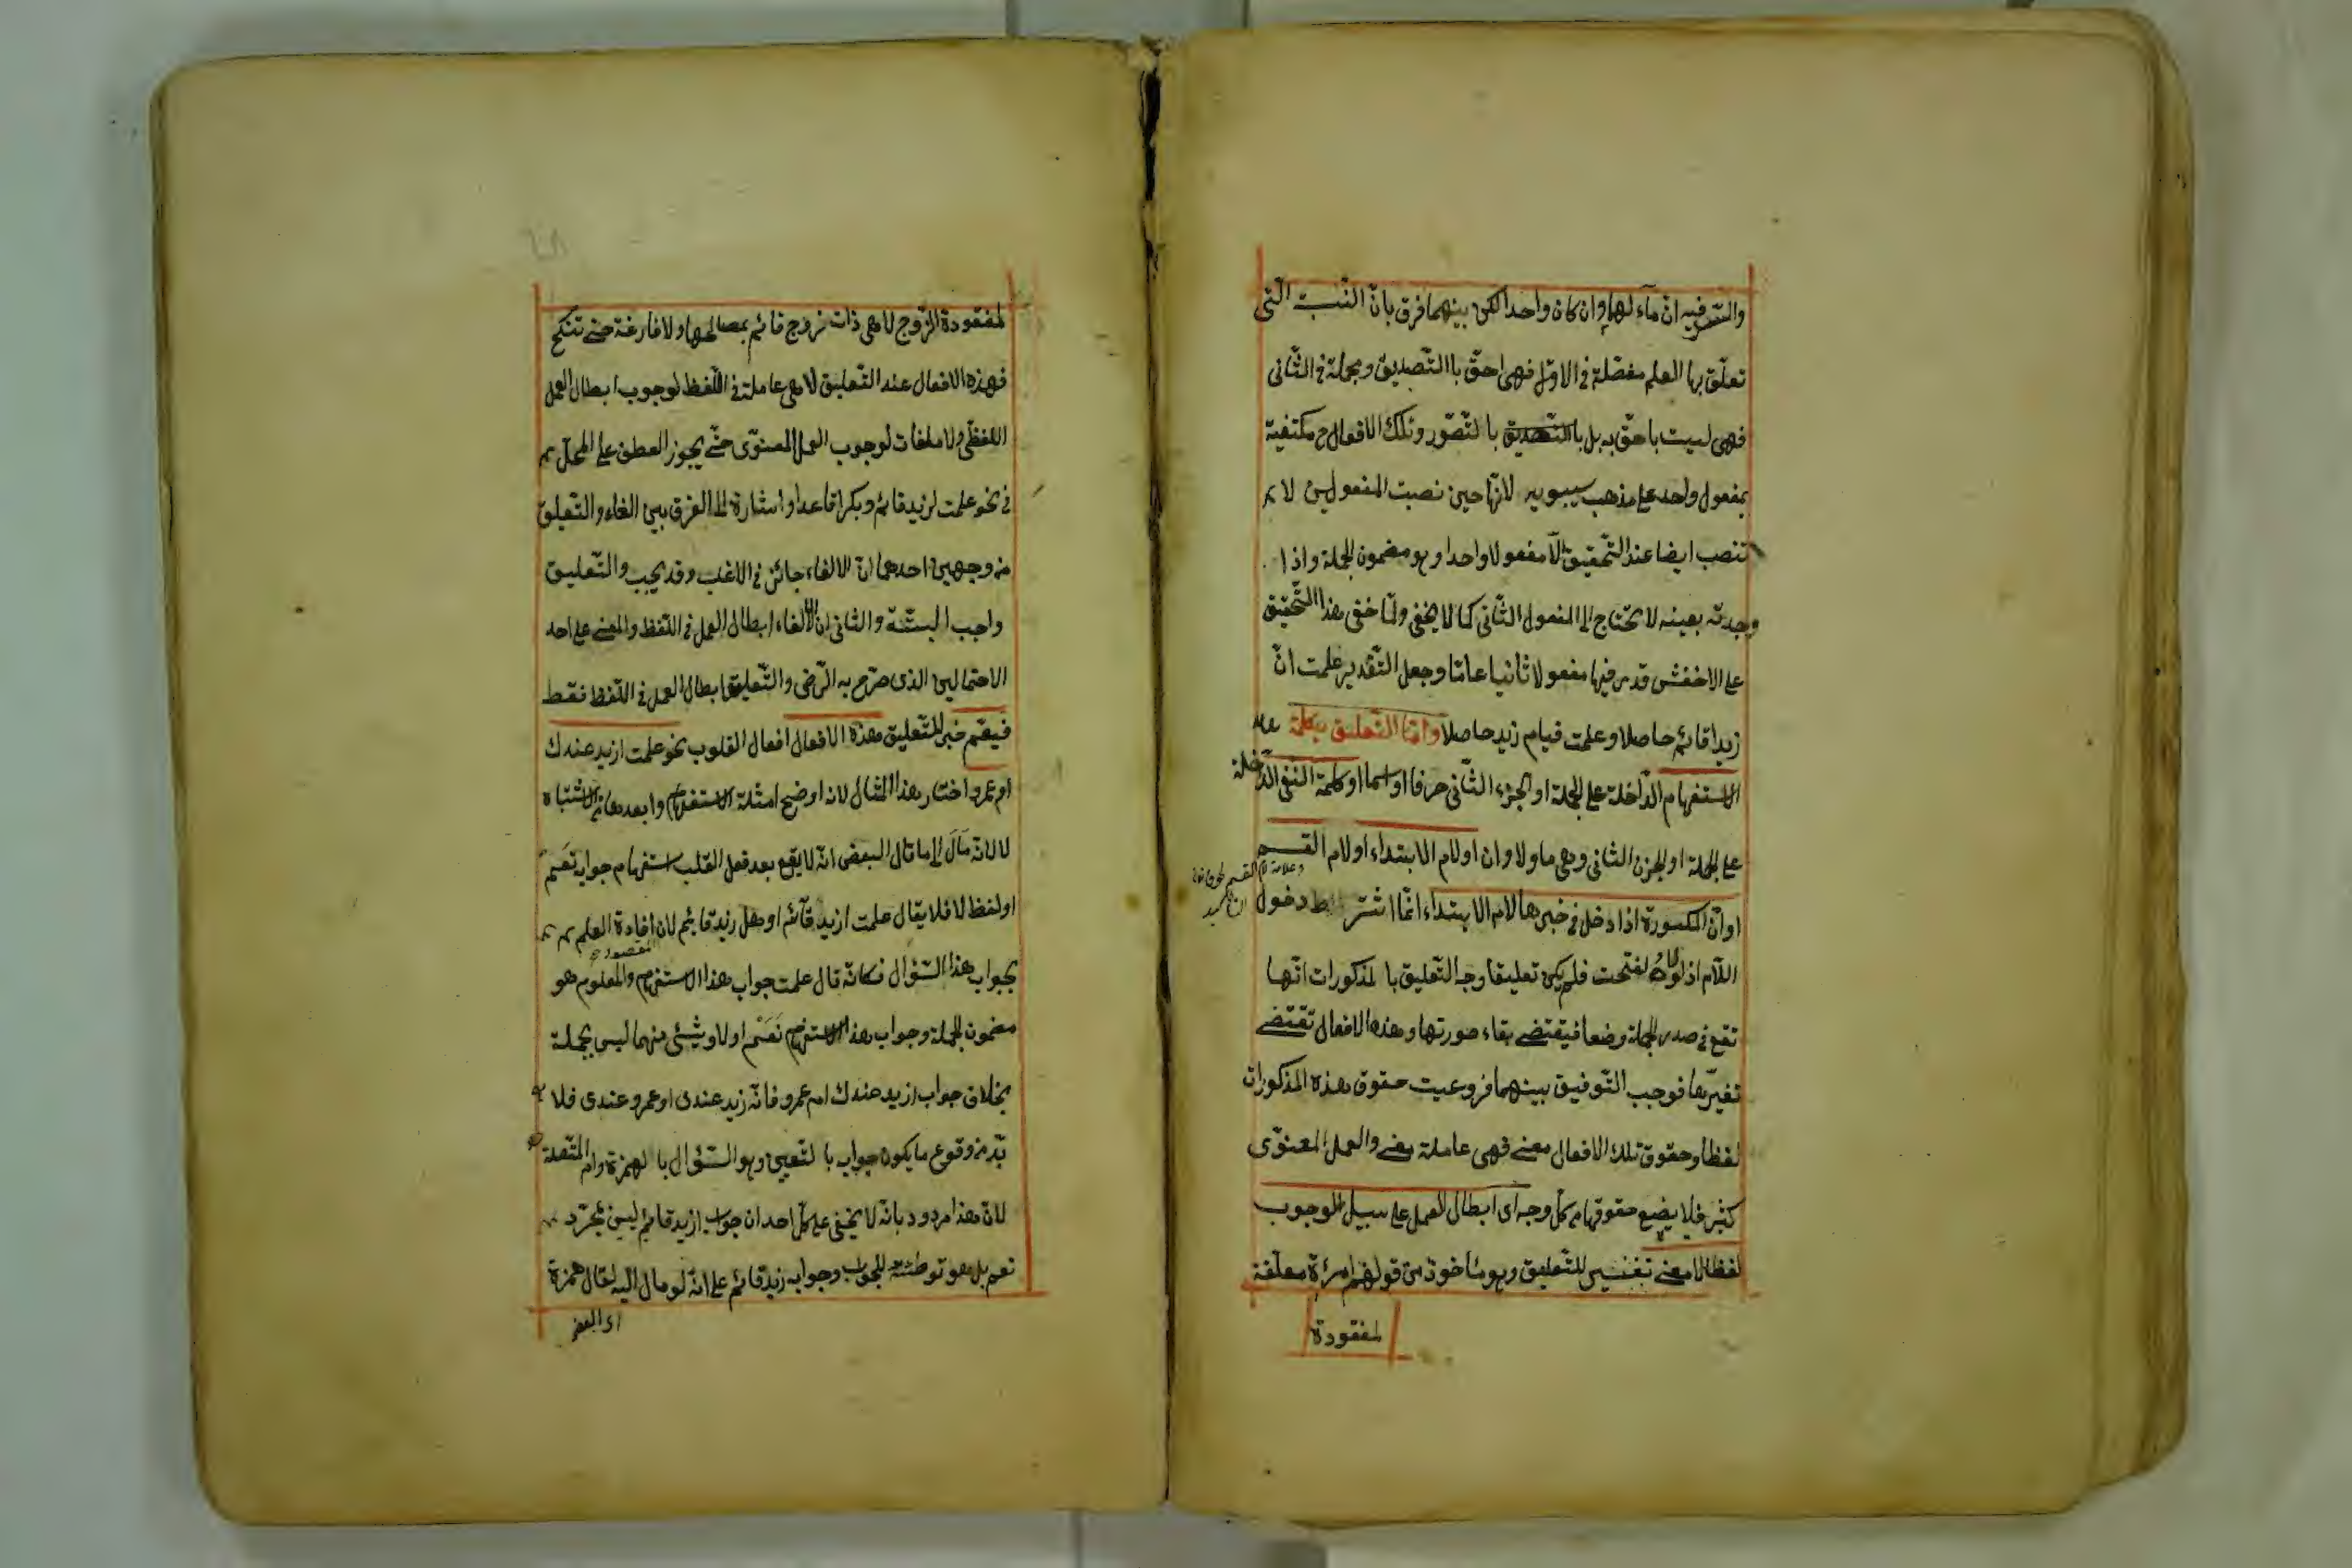 والسّر فيه انّ مآء لهما وان كان واحدا لكن بينهما فرق بانّ النّسب التى
تعلّق بها العلم مفصّلة فى الاوّل فهى احقّ باالتّصديق ومجملة فى الثّانى
فهى ليست باحقّ به بل باالتّصديق بالتّصوّر وتلك الافعال ح مكتفية
بمفعول واحد على مذهب سيبويه لانّها حين نصبت المفعولين لا
تنصب ايضا عند التّحقيق الّا مفعولا واحدا وهو مضمون الجملة واذا
وجدته بعينه لا يحتاج الى المفعول الثّانى كما لا يخفى ولمّا خفى هذا التّحقيق
على الاخفش قدر فيها مفعولا ثانيا عامّا وجعل التّقدير علمت انّ
زيدا قائم حاصلا وعلمت قيام زيد حاصلا وامّا التّعليق بكلمة
الاستفهام الدّاخلة على الجملة او الجزء الثّانى حرفا او اسما او كلمة النّفى الدّاخلة
على الجملة او الجزء الثانى وهى ما ولا وان او لام الابتداء او لام القسم
او انّ المكسورة اذا دخل فى خبرها لام الابتداء انّما اشترط دخول
اللّام اذ لولاه لفتحت فلم يكن تعليقا وجه التّعليق بالمذكورات انّها
تقع فى صدر الجملة وضعا فيقتضى بقاء صورتها وهذه الافعال تقتضى
تغيّرها فوجب التّوفيق بينهما فروعيت حقوق هذه المذكورات
لفظا وحقوق تلك الافعال معنى فهى عاملة معنى والعمل المعنوّى
كثير فلا يضيع حقوقها من كلّ وجه اى ابطال العمل على سبيل الوجوب
لفظا لا معنى تفسير للتّعليق وهو مأخوذ من قولهم امرأة معلّقة
لمفقودة
لمفقودة الزّوج لا هى ذات زوج قائم بمصالحها ولا فارغة حتى تنكح
فهذه الافعال عند التّعليق لا هى عاملة فى اللّفظ لوجوب ابطال العمل
اللفظّى ولا ملغات لوجوب العمل المعنوّى حتّى يجوز العطف على المحلّ
فى نحو علمت لزيد قائم وبكرا قاعدا واشارة الى الفرق بين الغاء والتعليق
من وجهين احدهما انّ الالغاء جائز فى الاغلب وقد يجب والتّعليق
واجب البتّة والثانى انّ الالغاء ابطال العمل فى اللّفظ والمعنى على احد
الاحتمالين الذى صرّح به الرّضى والتّعليق ابطال العمل فى اللّفظ فقط
فيعمّ خبر للتّعليق هذه الافعال افعال القلوب نحو علمت ازيد عندك
ام عمرو اختار هذا المثال لانه اوضح امثلة الاستفهام وابعدها من الاشتباه
لا لانّه مَالَ الى ما قال البعض انّه لا يقع بعد فعل القلب استفهام جوابه نَعَم
او لفظ لا فلا يقال علمت ازيد قآئم او هل زيد قائم لان افادة العلم
المقصود
بجواب هذا السّؤال فكانّه قال علمت جواب هذا الاستفهام والمعلوم هو
مضمون الجملة وجواب هذا الاستفهام نَعَمْ او لا وشئى منهما ليس بجملة
بخلاف جواب ازيد عندك ام عمرو فانّه زيد عندى او عمرو عندى فلا
بّد من وقوع ما يكون جوابه بالتّعيين وهو السّؤال بالهمزة وام المتّصلة
لانّ هذا مردود بانّه لا يخفى على كلّ احد ان جواب ازيد قائم ليس مجرّد
نعم بل هو توطئة للجواب وجوابه زيد قائم على انّه لو مال اليه لقال همزة